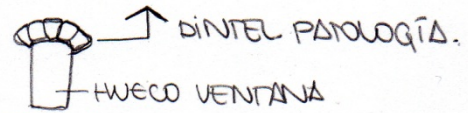 DINTEL PATOLOGÍA.
HUECO VENTANA